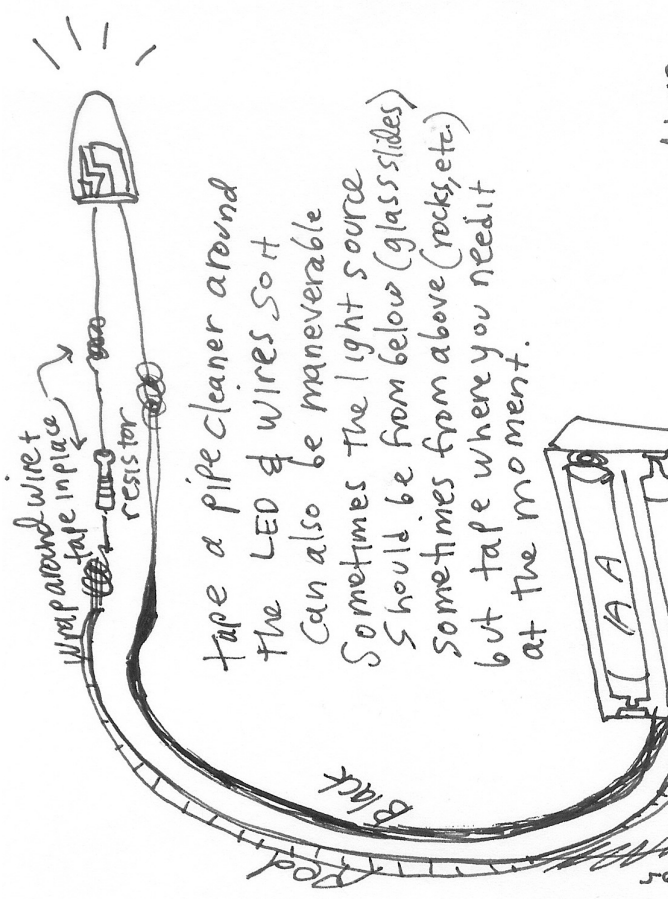 wrap around wire +
tape in place
resistor
tape a pipe cleaner around
the LED & wires so it
can also be maneverable
Sometimes the light source
should be from below (glass slides)
sometimes from above (rocks, etc.)
but tape where you need it
at the moment.
AA
Black
Red